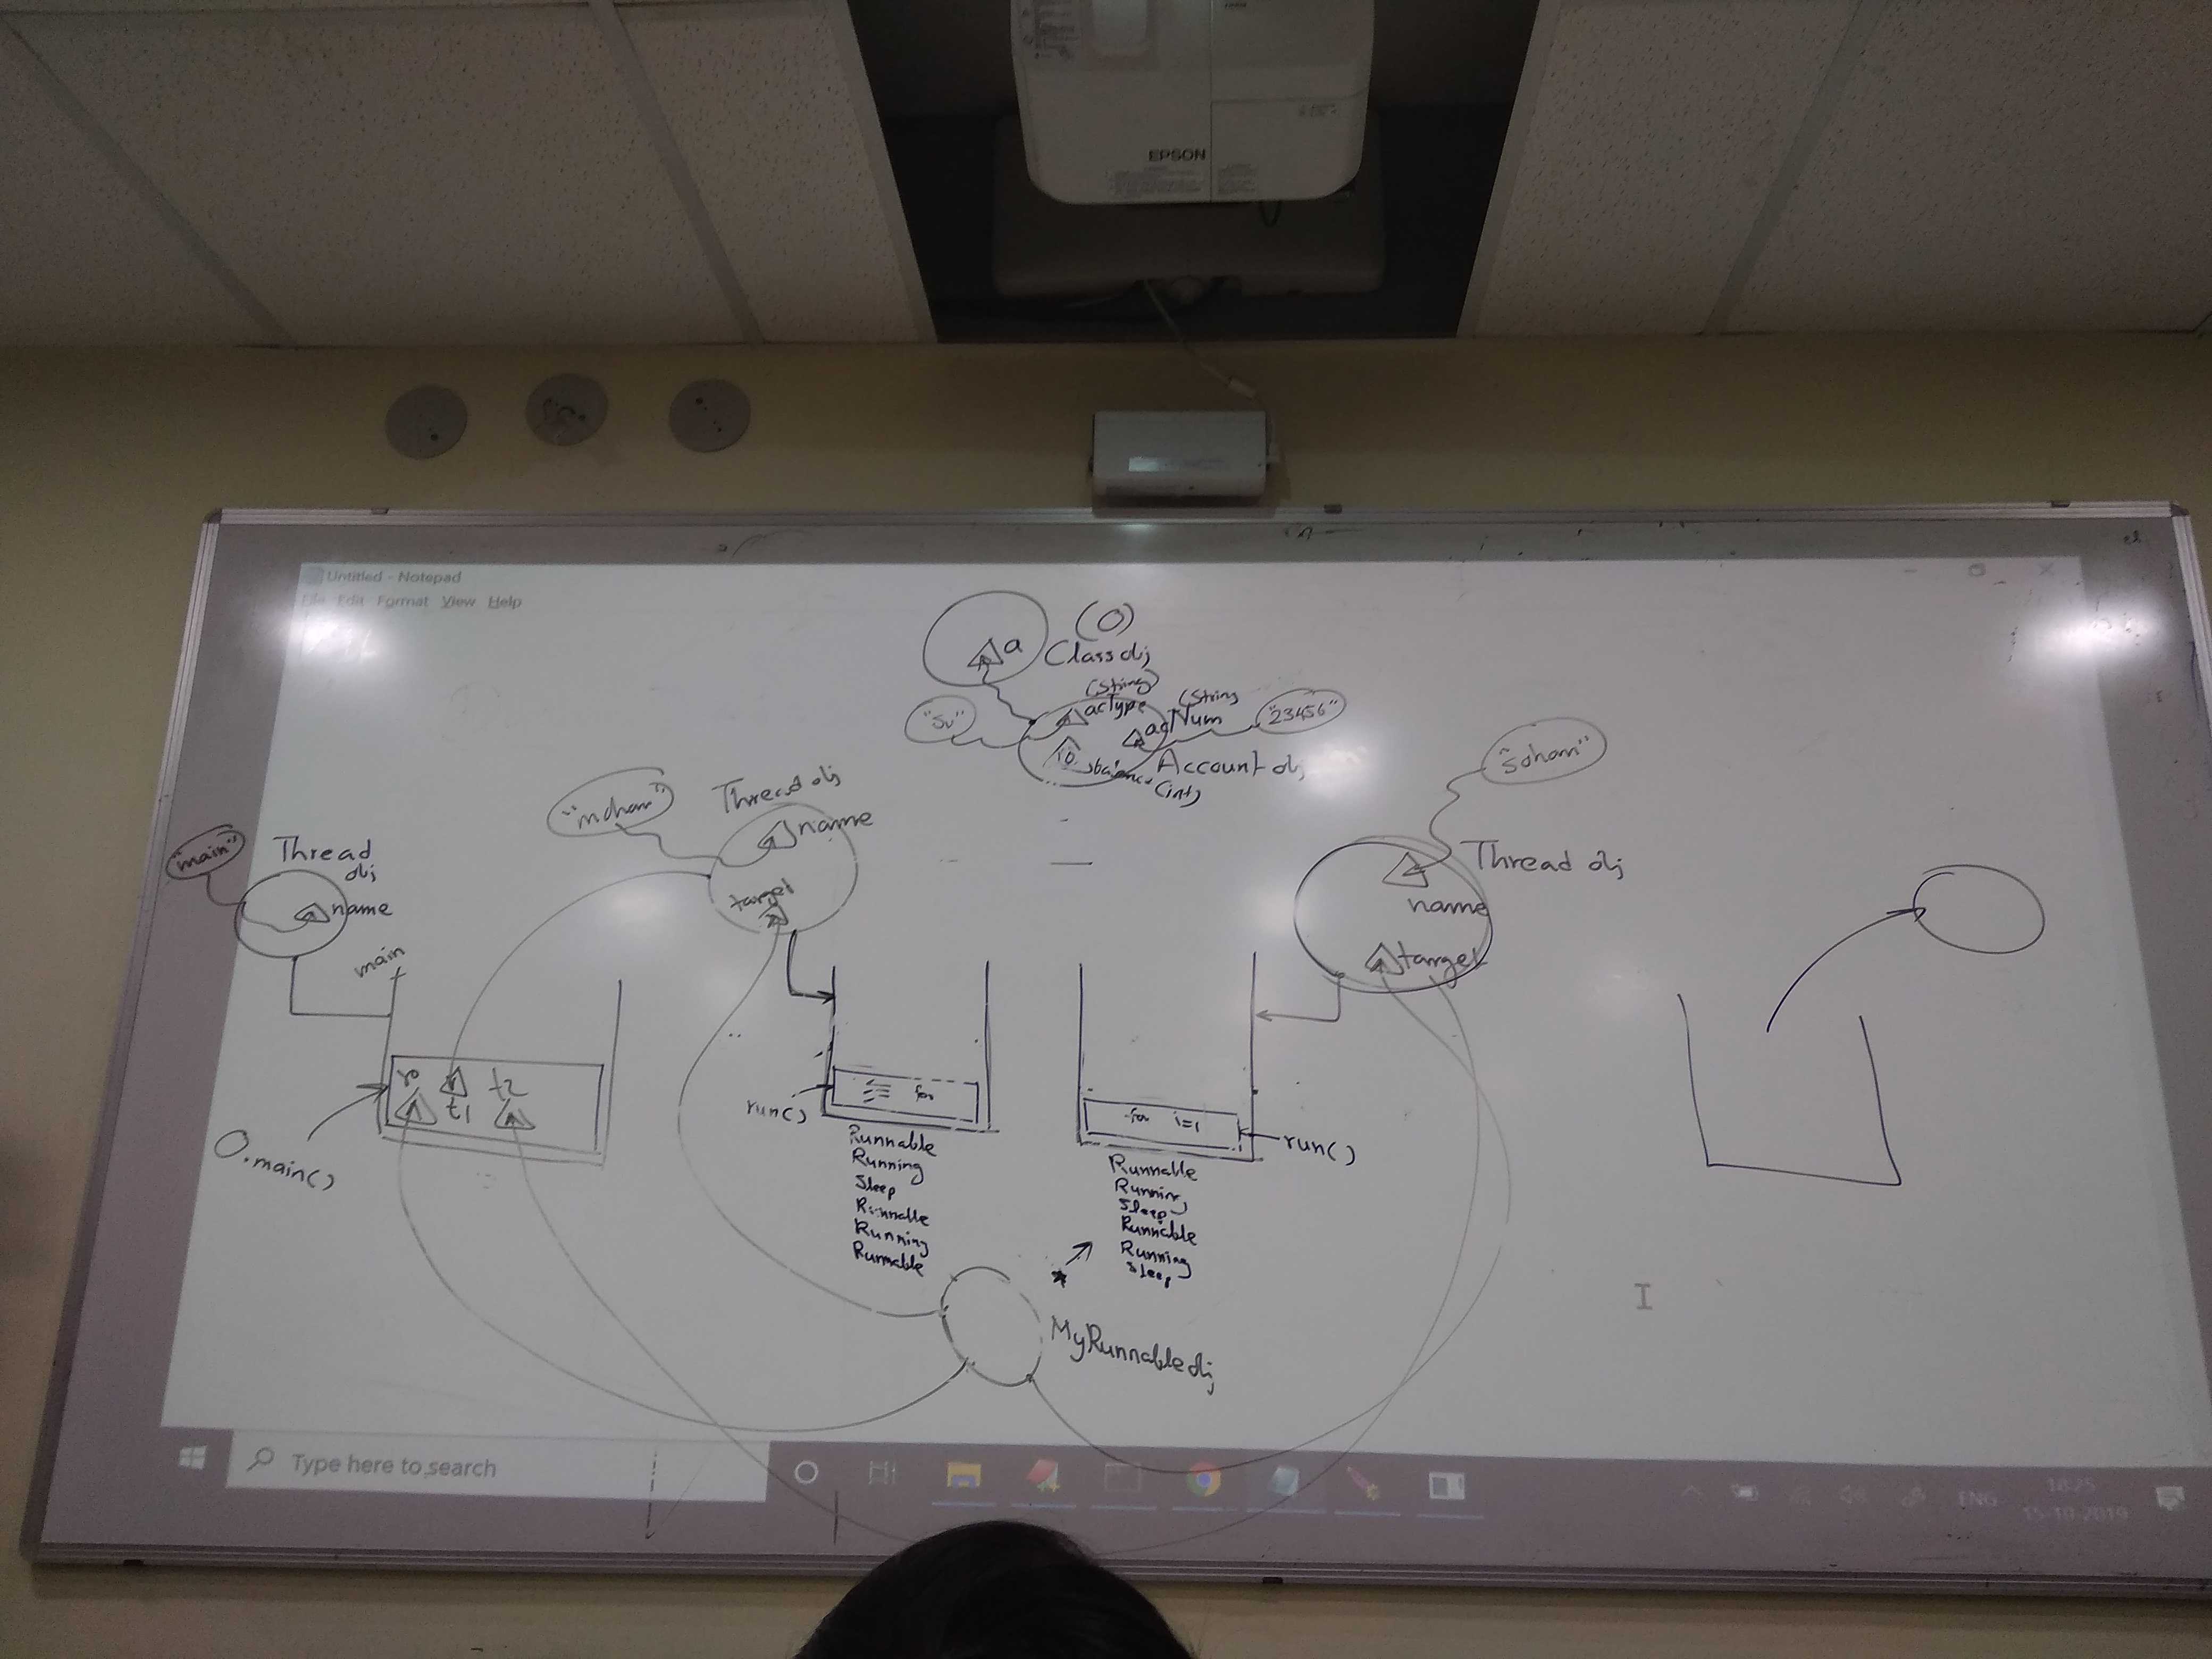 EPSON
Untitled - Notepad
File Edit Format View Help
a
(O)
Class obj
(String)
acType
(String
acNum
"Sv"
"23456"
10
balance
(int)
Account obj
"main"
Thread
obj
name
main
"mohan"
Thread obj
name
target
"soham"
Thread obj
name
target
r
t1
t2
O.main()
run()
for
Runnable
Running
Sleep
Runnable
Running
Runnable
for i=1
run()
Runnable
Running
Sleep
Runnable
Running
Sleep
MyRunnable obj
Type here to search
ENG
18:25
15-10-2019